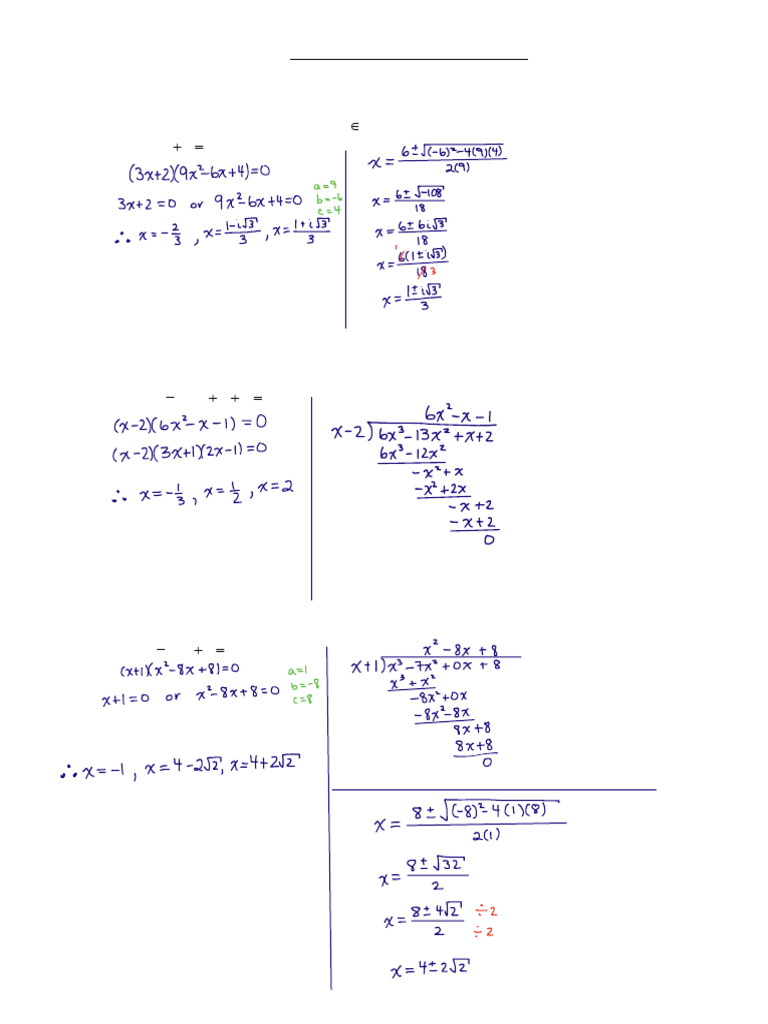 ∈
+ =
(3x+2)(9x²-6x+4)=0
3x+2=0 or 9x²-6x+4=0
a=9
b=-6
c=4
∴ x=-2/3 , x=(1-i√3)/3 , x=(1+i√3)/3
x= (6±√((-6)²-4(9)(4)))/(2(9))
x= (6±√-108)/18
x= (6±6i√3)/18
x= 6(1±i√3)/18 1 3
x= (1±i√3)/3
− + + =
(x-2)(6x²-x-1)=0
(x-2)(3x+1)(2x-1)=0
∴ x=-1/3 , x=1/2 , x=2
6x²-x-1
x-2)6x³-13x²+x+2
6x³-12x²
-x²+x
-x²+2x
-x+2
-x+2
0
− + =
(x+1)(x²-8x+8)=0
x+1=0 or x²-8x+8=0
a=1
b=-8
c=8
∴ x=-1 , x=4-2√2, x=4+2√2
x²-8x+8
x+1)x³-7x²+0x+8
x³+x²
-8x²+0x
-8x²-8x
8x+8
8x+8
0
x= (8±√((-8)²-4(1)(8)))/(2(1))
x= (8±√32)/2
x= (8±4√2)/2 ÷2 ÷2
x=4±2√2